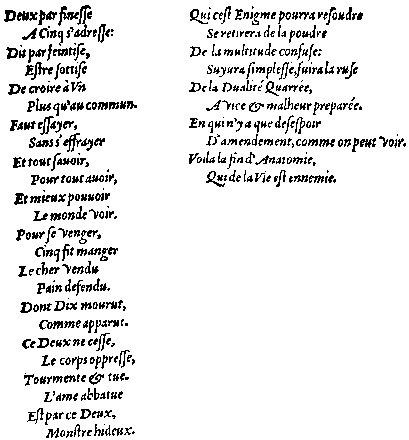 Deux par finesse
A Cinq s'adresse:
Dit par feintise,
Estre sottise
De croire à Vn
Plus qu'au commun.
Faut essayer,
Sans s'effrayer
Et tout sauoir,
Pour tout auoir,
Et mieux pouuoir
Le monde voir.
Pour se venger,
Cinq fit manger
Le cher vendu
Pain defendu.
Dont Dix mourut,
Comme apparut.
Ce Deux ne cesse,
Le corps oppresse,
Tourmente & tue.
L'ame abbatue
Est par ce Deux,
Monstre hideux.
Qui cest Enigme pourra resoudre
Se retirera de la poudre
De la multitude confuse:
Suyura simplesse, fuira la ruse
De la Dualité Quarrée,
A vice & malheur preparée.
En qui n'y a que desespoir
D'amendement, comme on peut voir.
Voila la fin d'Anatomie,
Qui de la Vie est ennemie.